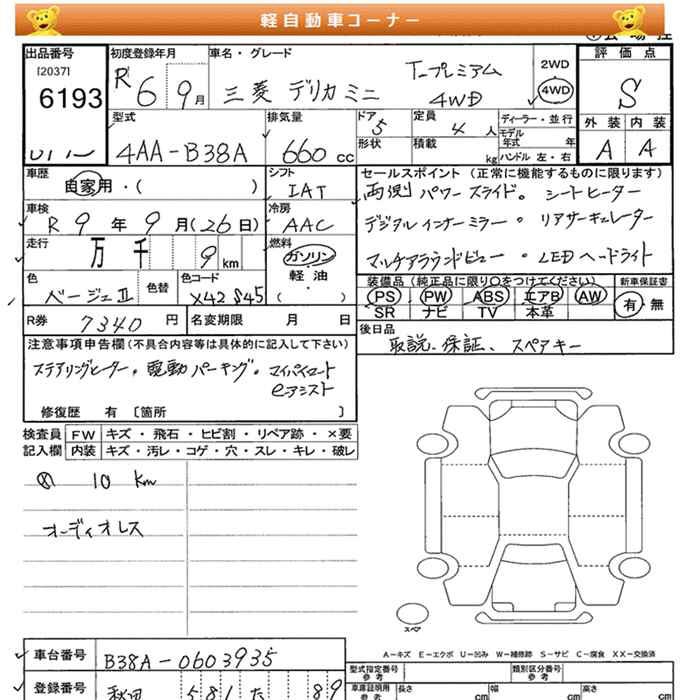 軽自動車コーナー
出品番号
[2037]
6193
初度登録年月
R6 9月
車名・グレード
三菱 デリカミニ
T-プレミアム
4WD
2WD
4WD
評価点
S
外装 内装
A A
型式
4AA-B38A
排気量
660 cc
ドア
5
定員
4 人
形状
積載 kg
ディーラー・並行
モデル年式 年
ハンドル 左・右
車歴
自家用・( )
シフト
IAT
車検
R9年9月(26日)
冷房
AAC
走行
万 千 9 km
燃料
ガソリン
軽油
( )
色
ベージュⅡ
色替
色コード
X42 S45
R券
7340 円
名変期限 月 日
セールスポイント(正常に機能するものに限ります)
両側パワースライド。シートヒーター
デジタルインナーミラー。リアサーキュレーター
マルチアラウンドビュー・LEDヘッドライト
装備品(純正品に限り○をつけてください)
新車保証書
PS PW ABS エアB AW
SR ナビ TV 本革
有・無
後日品
取説、保証、スペアキー
注意事項申告欄(不具合内容等は具体的に記入して下さい)
ステアリングヒーター。電動パーキング。マイパイロット
eアシスト
修復歴 有 〔箇所 〕
検査員
記入欄
FW キズ・飛石・ヒビ割・リペア跡・×要
内装 キズ・汚レ・コゲ・穴・スレ・キレ・破レ
10 km
オーディオレス
スペア
A－キズ E－エクボ U－凹み W－補修跡 S－サビ C－腐食 XX－交換済
車台番号
B38A-0603935
登録番号
秋田 581 た 89
型式指定番号
参考
類別区分番号
参考
車庫証明用
参考
長さ cm
幅 cm
高さ cm